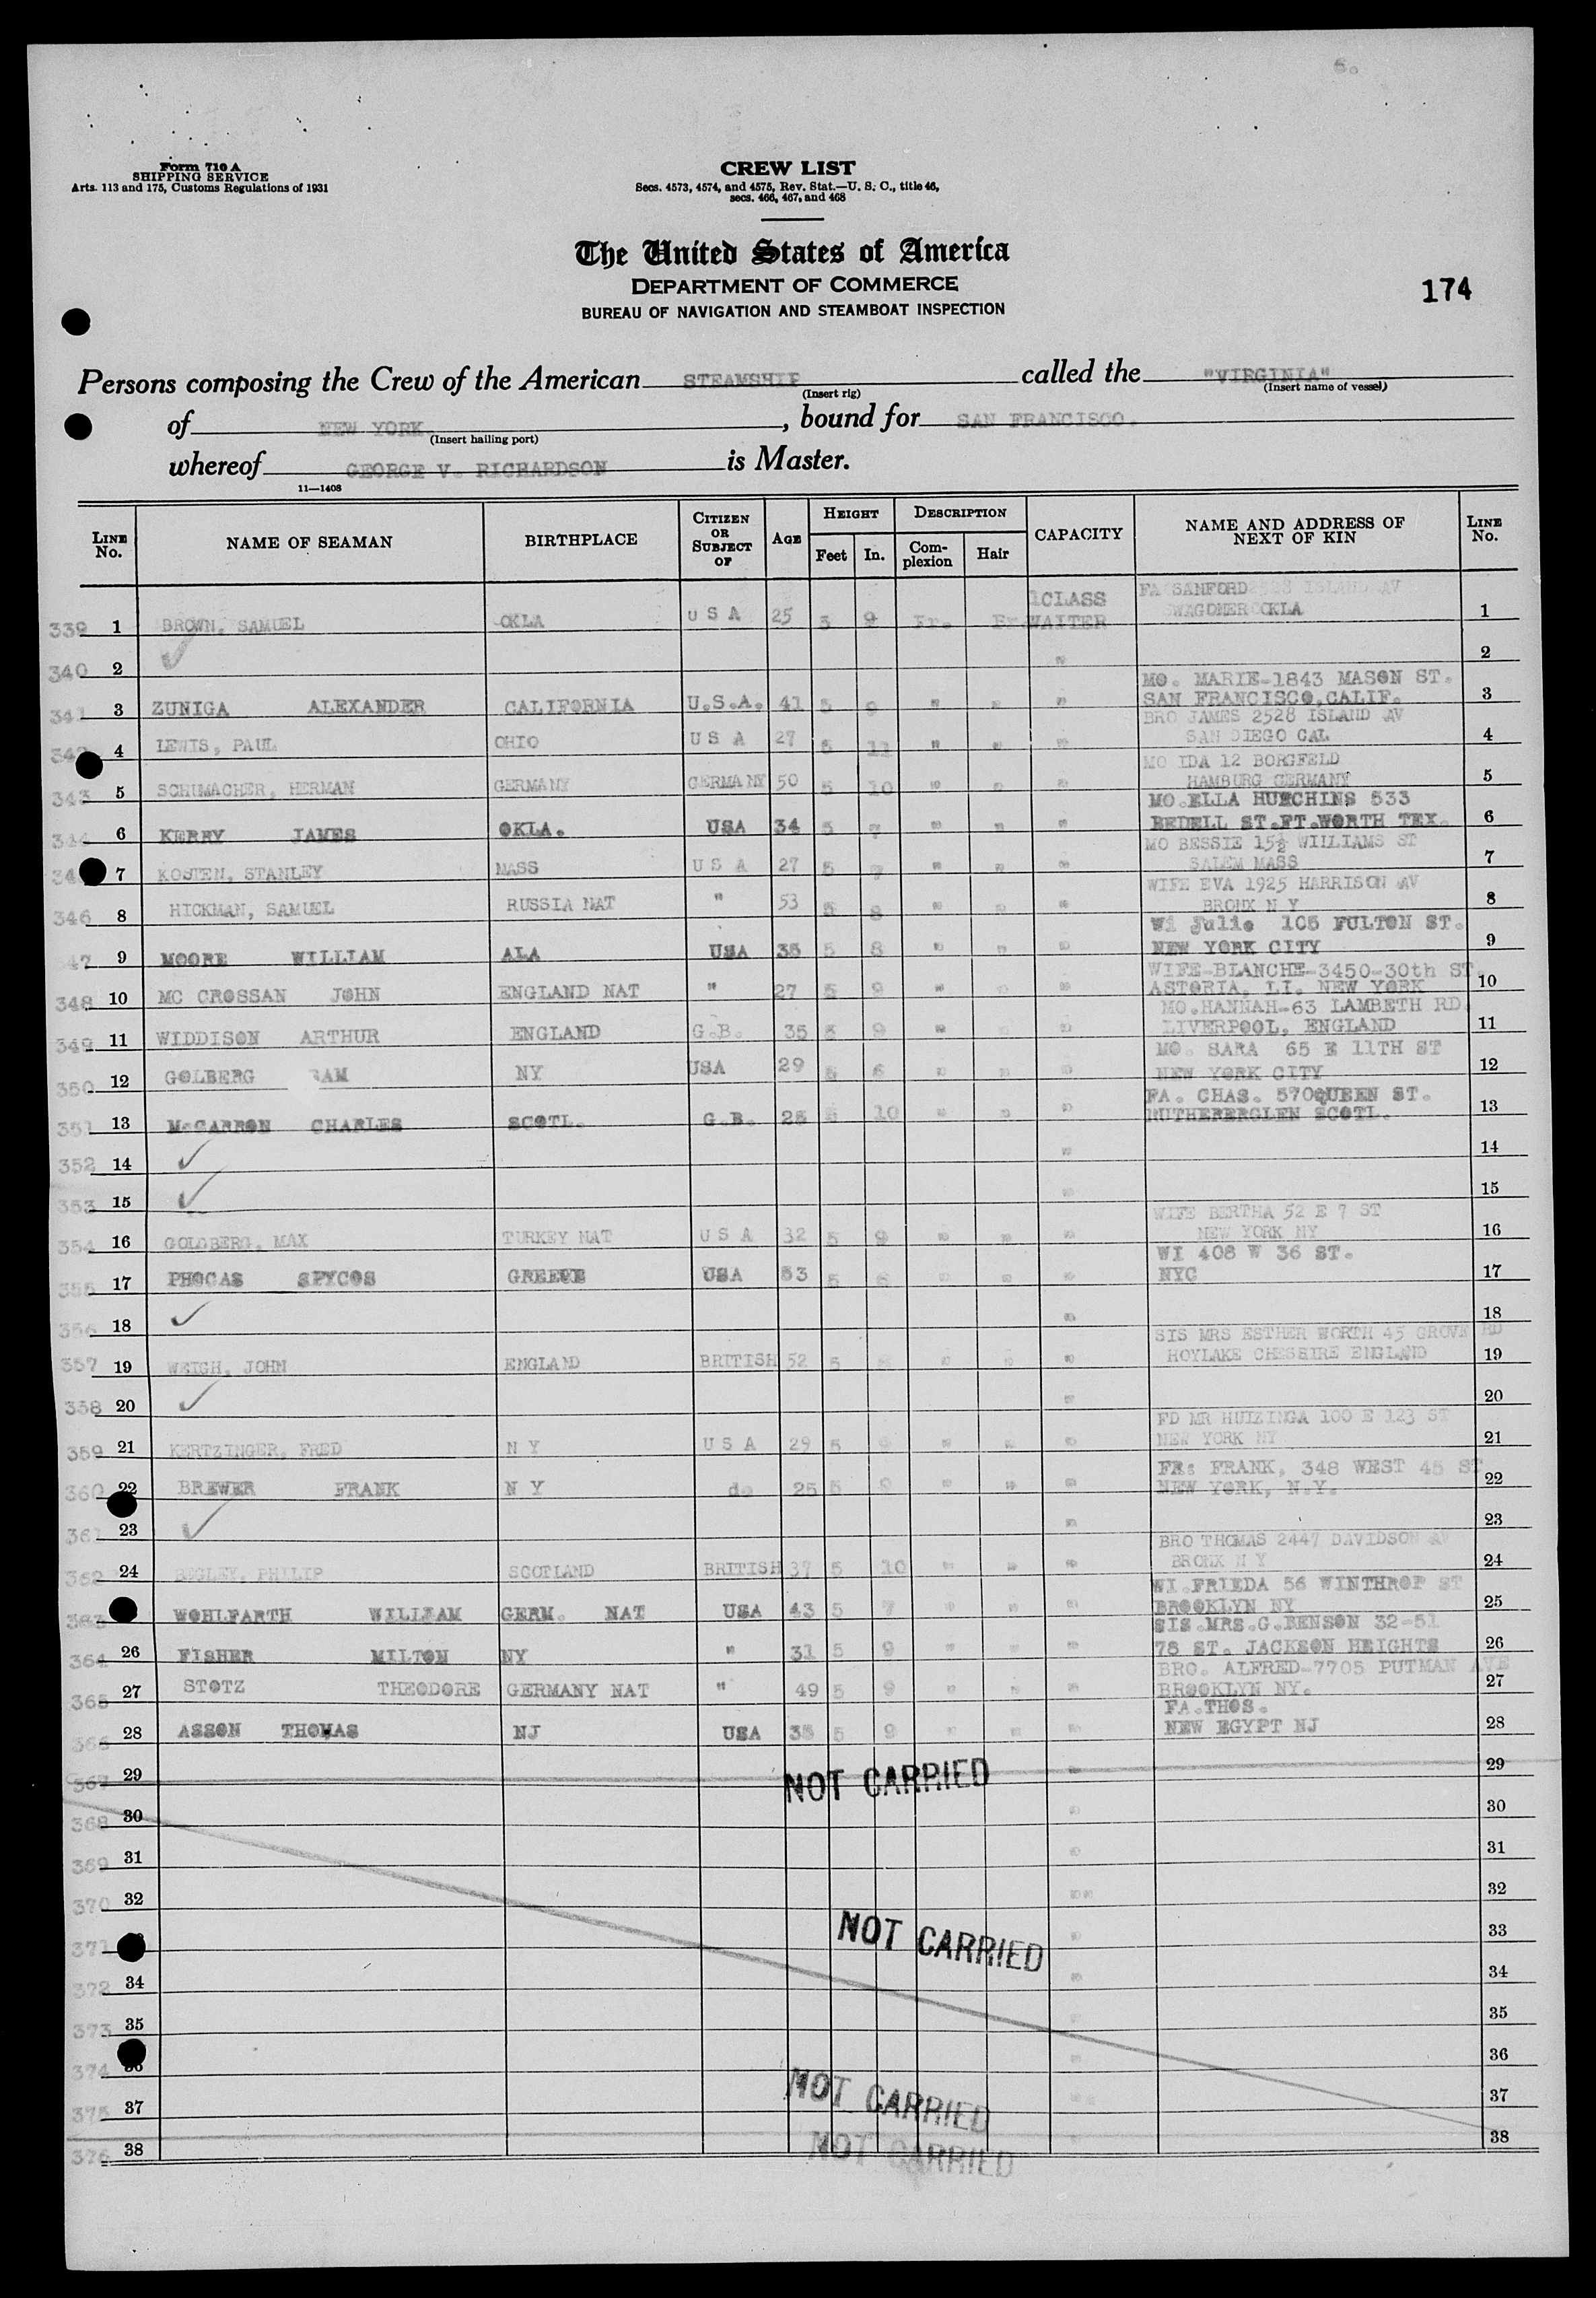 6.
Form 710 A
SHIPPING SERVICE
Arts. 113 and 175, Customs Regulations of 1931
CREW LIST
Secs. 4573, 4574, and 4575, Rev. Stat.—U. S. C., title 46,
secs. 466, 467, and 468
The United States of America
DEPARTMENT OF COMMERCE
BUREAU OF NAVIGATION AND STEAMBOAT INSPECTION
174
Persons composing the Crew of the American STEAMSHIP called the "VIRGINIA"
(Insert rig) (Insert name of vessel)
of NEW YORK, bound for SAN FRANCISCO.
(Insert hailing port)
whereof GEORGE V. RICHARDSON is Master.
11—1408
LINE No. NAME OF SEAMAN BIRTHPLACE CITIZEN OR SUBJECT OF AGE HEIGHT Feet In. DESCRIPTION Complexion Hair CAPACITY NAME AND ADDRESS OF NEXT OF KIN LINE No.
FA SANFORD
339 1 BROWN, SAMUEL OKLA U S A 25 5 9 Fr. Br. 1CLASS WAITER WAGONER OKLA 1
340 2 ✓ " 2
MO. MARIE-1843 MASON ST.
341 3 ZUNIGA ALEXANDER CALIFORNIA U.S.A. 41 5 9 " " " SAN FRANCISCO,CALIF. 3
BRO JAMES 2528 ISLAND AV
342 4 LEWIS, PAUL OHIO U S A 27 5 11 " " " SAN DIEGO CAL 4
MO IDA 12 BORGFELD
343 5 SCHUMACHER, HERMAN GERMANY GERMANY 50 5 10 " " " HAMBURG GERMANY 5
MO.ELLA HUTCHINS 533
344 6 KERRY JAMES OKLA. USA 34 5 7 " " " BEDELL ST.FT.WORTH TEX. 6
MO BESSIE 15½ WILLIAMS ST
34 7 KOSTEN, STANLEY MASS U S A 27 5 7 " " " SALEM MASS 7
WIFE EVA 1925 HARRISON AV
346 8 HICKMAN, SAMUEL RUSSIA NAT " 53 5 8 " " " BRONX N Y 8
Wi Julie 105 FULTON ST.
47 9 MOORE WILLIAM ALA USA 35 5 8 " " " NEW YORK CITY 9
WIFE-BLANCHE-3450-30th ST.
348 10 MC CROSSAN JOHN ENGLAND NAT " 27 5 9 " " " ASTORIA, LI. NEW YORK 10
MO.HANNAH-63 LAMBETH RD.
349 11 WIDDISON ARTHUR ENGLAND G.B. 35 5 9 " " " LIVERPOOL, ENGLAND 11
MO. SARA 65 E 11TH ST
350 12 GOLBERG SAM NY USA 29 5 6 " " " NEW YORK CITY 12
FA. CHAS. 570QUEEN ST.
351 13 McCARRON CHARLES SCOTL. G.B. 25 5 10 " " " RUTHERERGLEN SCOTL. 13
352 14 ✓ " 14
353 15 ✓ " 15
WIFE BERTHA 52 E 7 ST
354 16 GOLDBERG, MAX TURKEY NAT U S A 32 5 9 " " " NEW YORK NY 16
WI 408 W 36 ST.
355 17 PHOCAS SPYCOS GREECE USA 53 5 6 " " " NYC 17
356 18 ✓ " 18
SIS MRS ESTHER WORTH 45 GROVE RD
357 19 WEIGH, JOHN ENGLAND BRITISH 52 5 " " " HOYLAKE CHESSIRE ENGLAND 19
358 20 ✓ " 20
FD MR HUIZINGA 100 E 123 ST
359 21 KERTZINGER, FRED N Y U S A 29 5 " " " NEW YORK NY 21
FR: FRANK, 348 WEST 45 ST
360 22 BREWER FRANK N Y do 25 5 9 " " " NEW YORK, N.Y. 22
361 23 ✓ " 23
BRO THOMAS 2447 DAVIDSON AV
362 24 BEGLEY, PHILIP SCOTLAND BRITISH 37 5 10 " " " BRONX N Y 24
WI.FRIEDA 56 WINTHROP ST
363 WOHLFARTH WILLIAM GERM. NAT USA 43 5 7 " " " BROOKLYN NY 25
SIS.MRS.G.BENSON 32-51
364 26 FISHER MILTON NY " 31 5 9 " " " 78 ST. JACKSON HEIGHTS 26
BRO. ALFRED-7705 PUTMAN AVE
365 27 STOTZ THEODORE GERMANY NAT " 49 5 9 " " " BROOKLYN NY. 27
FA.THOS.
366 28 ASSON THOMAS NJ USA 35 5 9 " " " NEW EGYPT NJ 28
367 29 NOT CARRIED " 29
368 30 " 30
369 31 " 31
370 32 " 32
371 NOT CARRIED " 33
372 34 " 34
373 35 35
374 36 " 36
375 37 NOT CARRIED " 37
376 38 NOT CARRIED 38